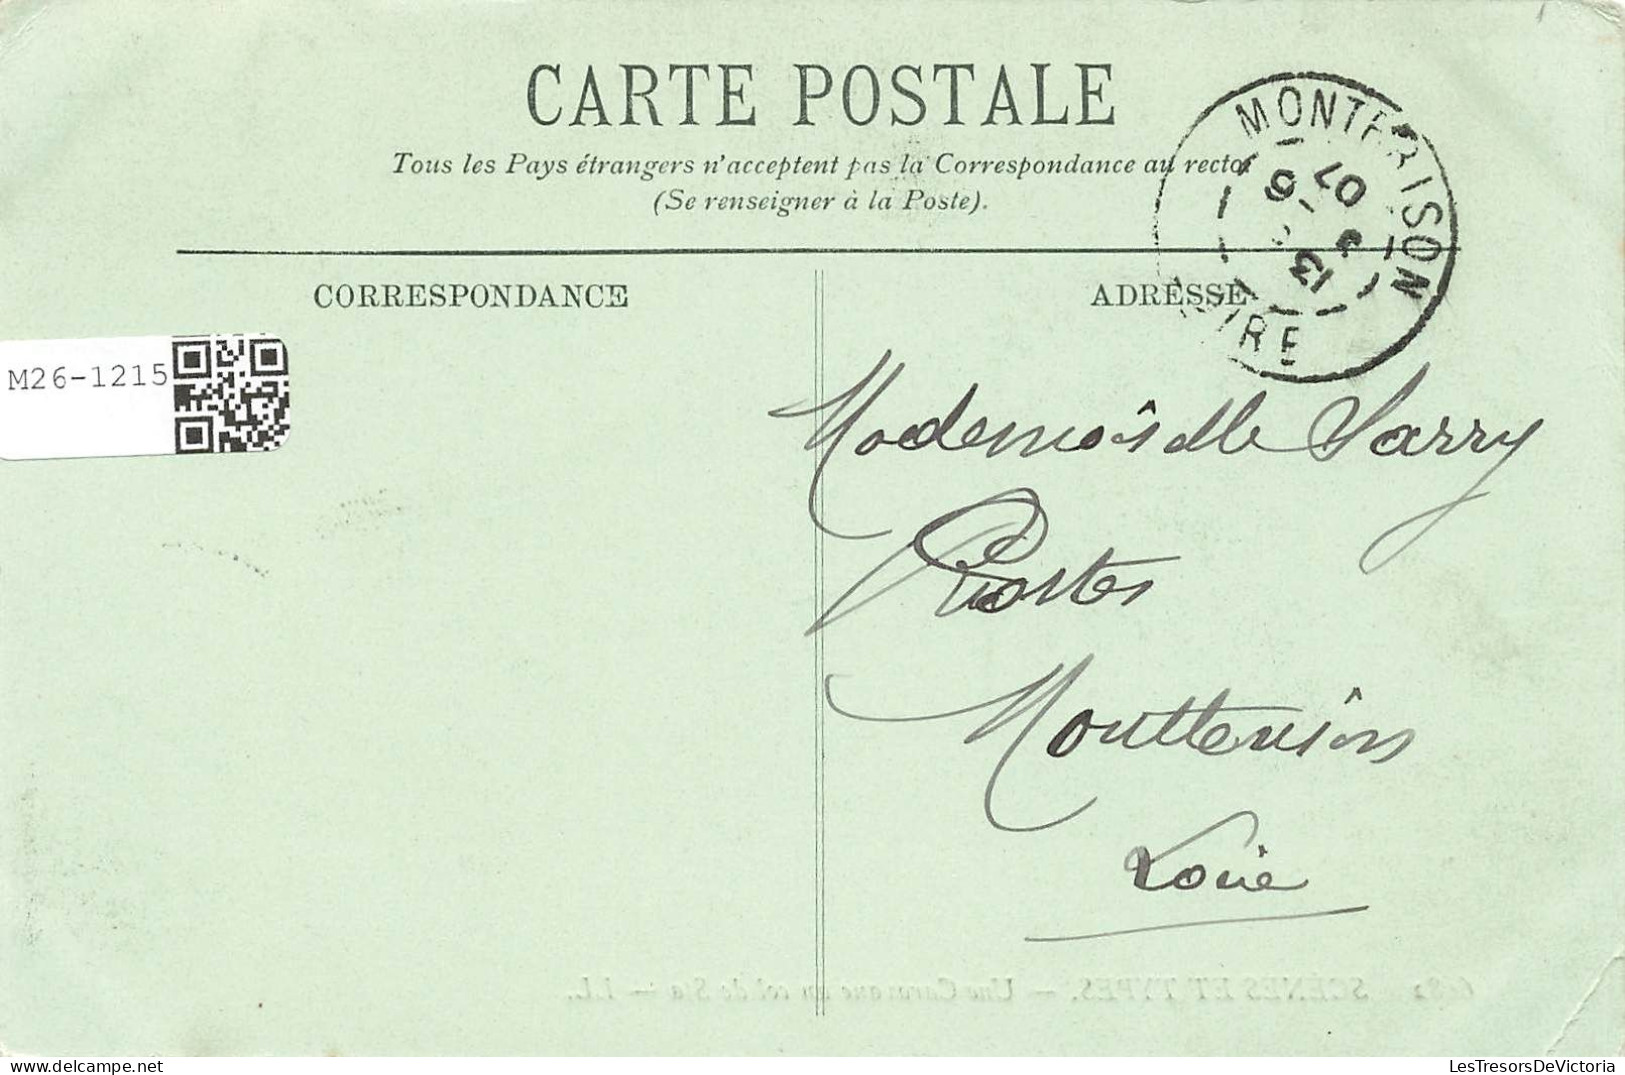 CARTE POSTALE
Tous les Pays étrangers n'acceptent pas la Correspondance au recto
(Se renseigner à la Poste).
MONTBRISON
LOIRE
13
07
CORRESPONDANCE
ADRESSE
M26-1215
Mademoiselle Sarry
Postes
Montbrison
Loire
SCÈNES ET TYPES. — Une Caravane au col de Sfa — LL.
LesTresorsDeVictoria